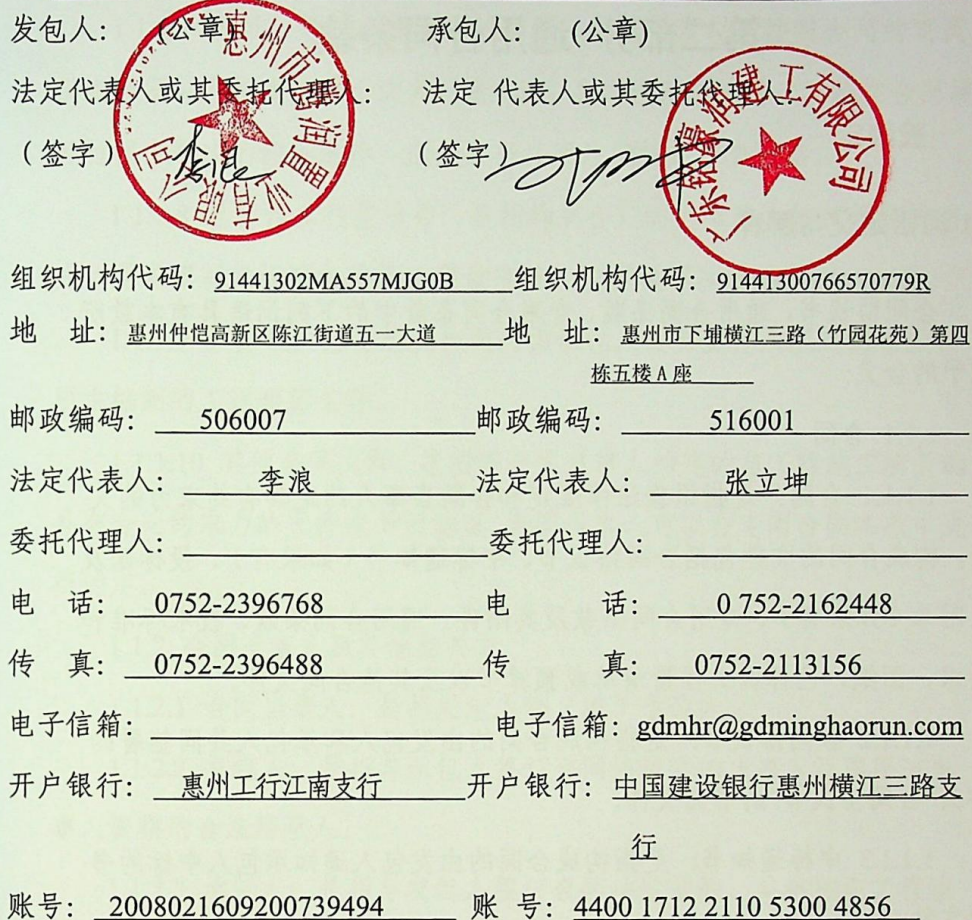 发包人： (公章) 承包人： (公章)
法定代表人或其委托代理人： 法定 代表人或其委托代理人：
（签字） （签字）
惠州市 润置业有限公司
广东铭濠润建工有限公司
李浪
组织机构代码：91441302MA557MJG0B 组织机构代码：91441300766570779R
地 址：惠州仲恺高新区陈江街道五一大道 地 址：惠州市下埔横江三路（竹园花苑）第四
栋五楼A座
邮政编码：506007 邮政编码：516001
法定代表人：李浪 法定代表人：张立坤
委托代理人： 委托代理人：
电 话：0752-2396768 电 话：0 752-2162448
传 真：0752-2396488 传 真：0752-2113156
电子信箱： 电子信箱：gdmhr@gdminghaorun.com
开户银行：惠州工行江南支行 开户银行：中国建设银行惠州横江三路支
行
账号：2008021609200739494 账 号：4400 1712 2110 5300 4856